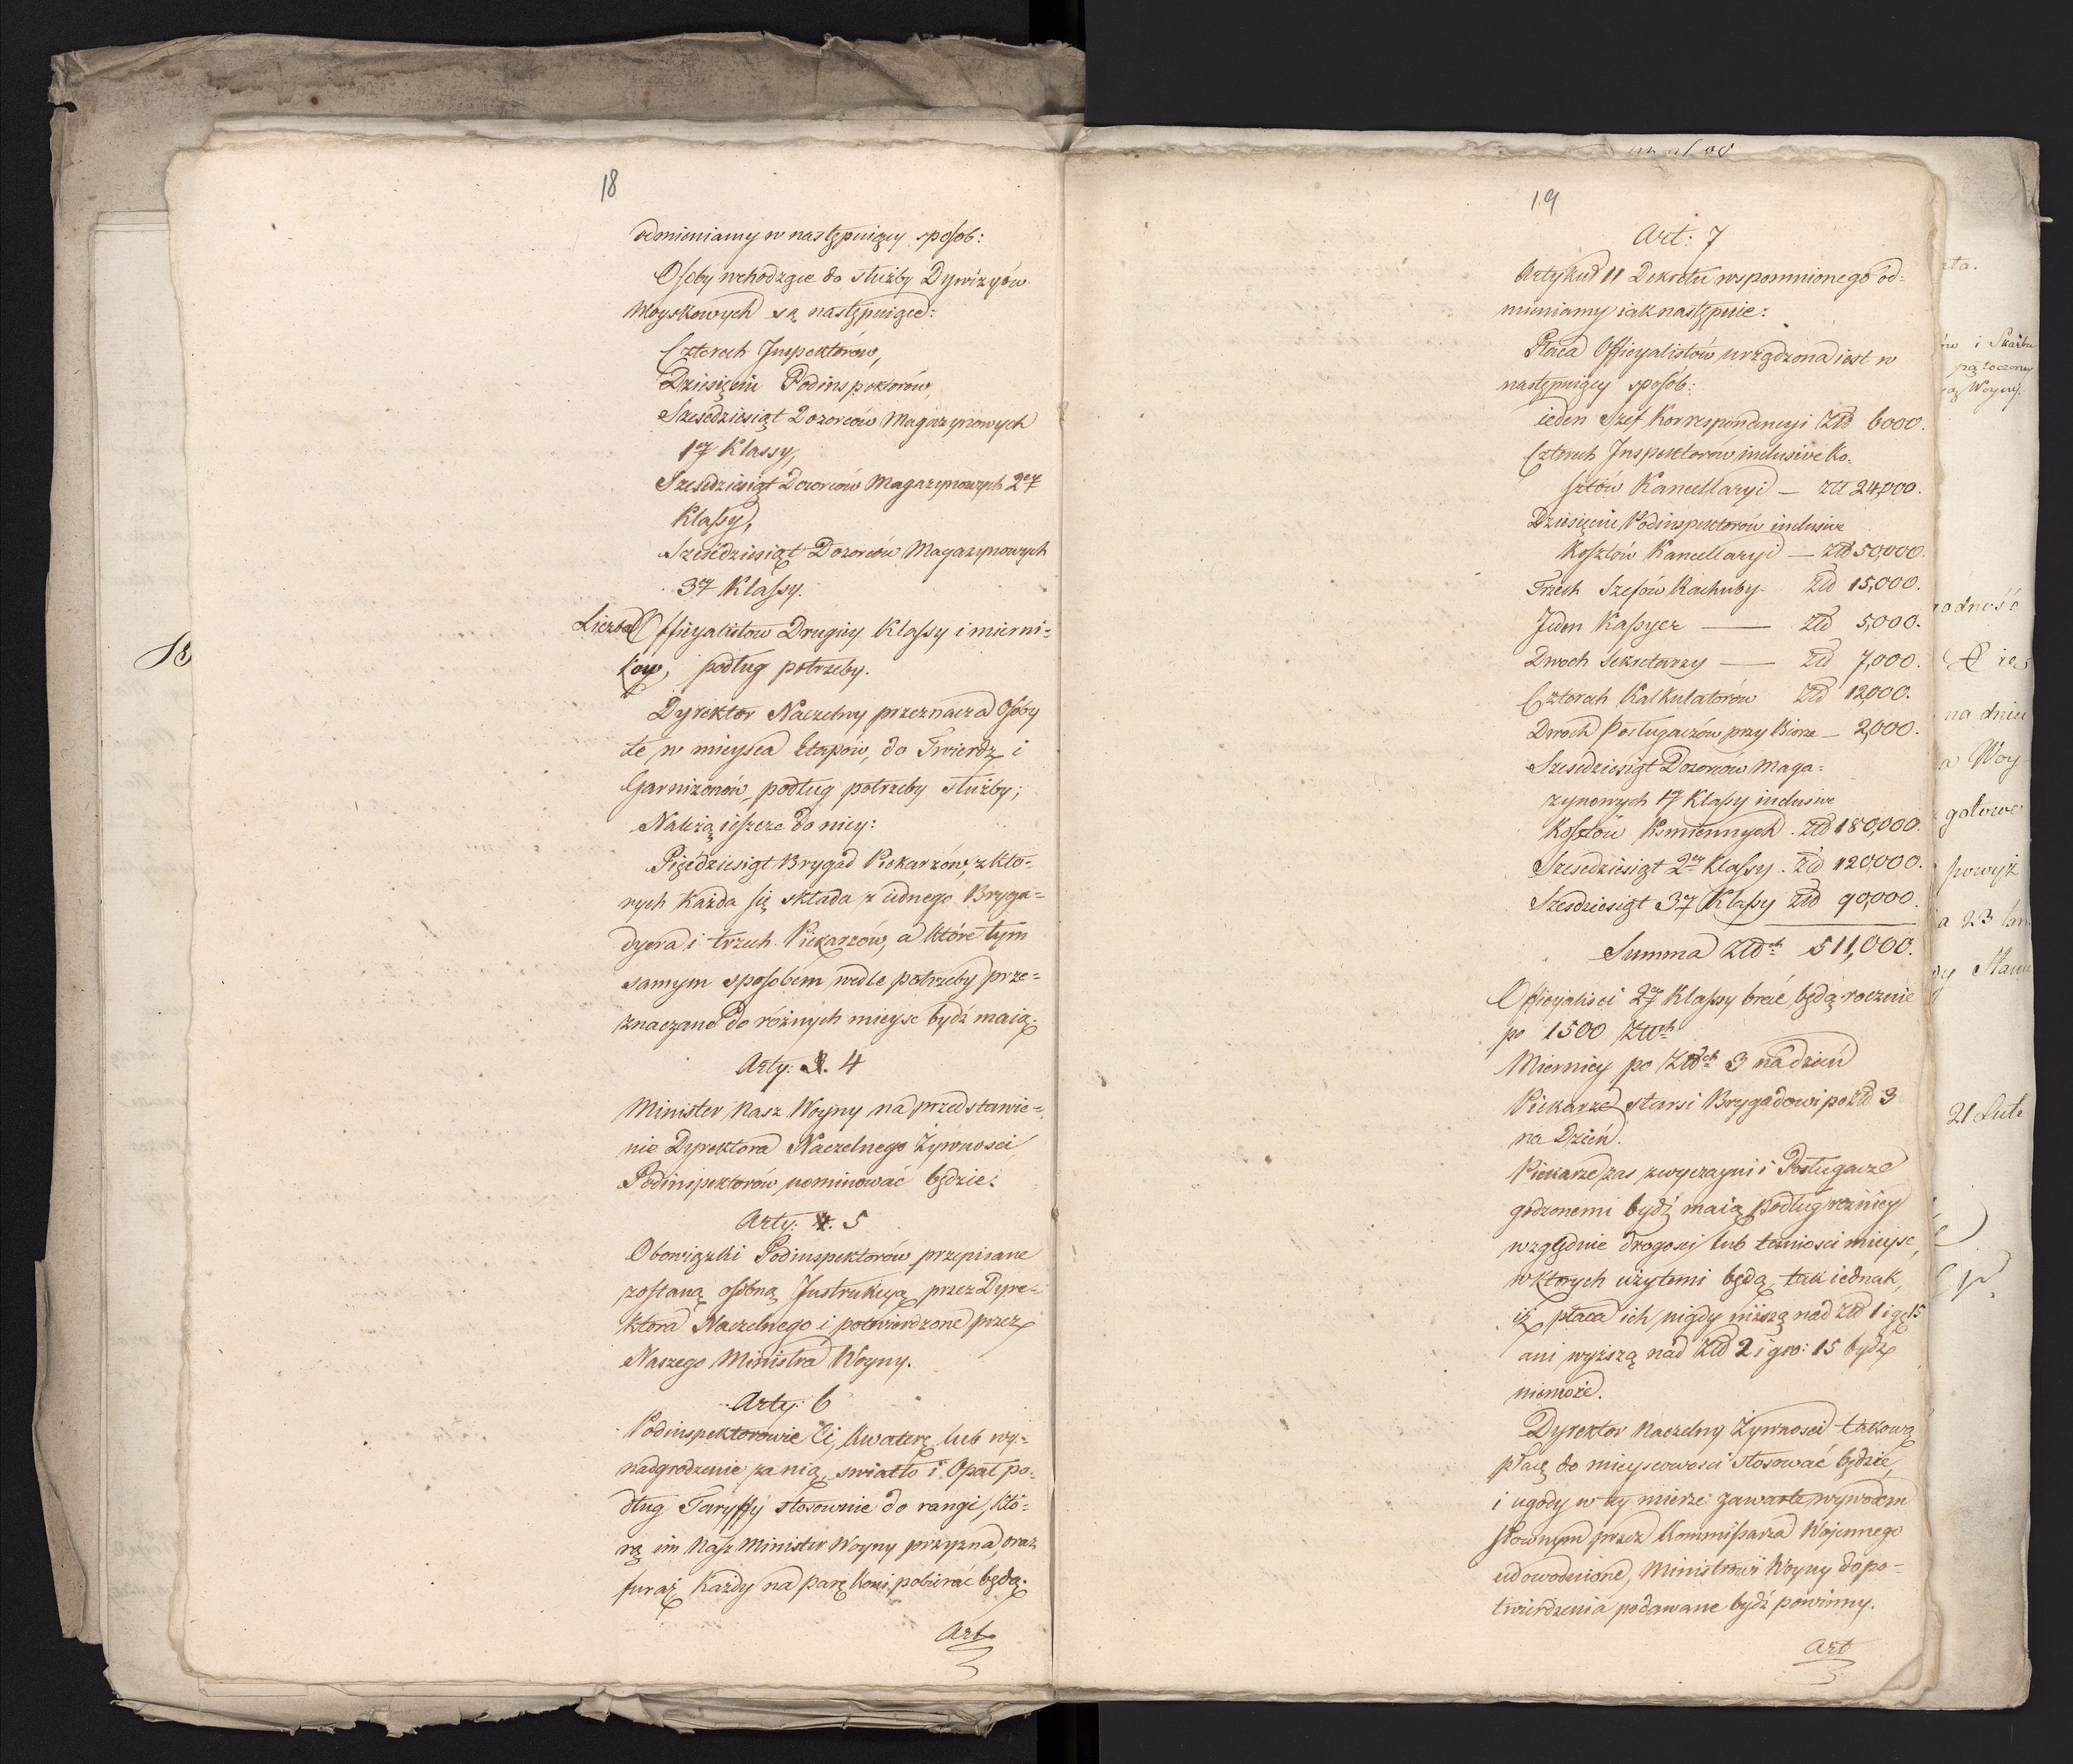 18
odmieniamy w następuiący sposob:
Osoby wchodzące do służby Dywizyów
Woyskowych są następuiące:
Czterech Inspektorów,
Dziesięciu Podinspektorów,
Szesćdziesiąt Dozorców Magazynowych
1ey Klassy,
Szesćdziesiąt Dozorców Magazynowych 2ey
Klassy,
Sześćdziesiąt Dozorców Magazynowych
3ey Klassy.
Liczba Officyalistow Drugiey Klassy i mierni=
kow, podług potrzeby.
Dyrektor Naczelny przeznacza Osoby
te w mieysca Etapów, do Twierdz i
Garnizonów, podług potrzeby służby;
Należą ieszcze do niey:
Pięćdziesiąt Brygad Piekarzów, z któ=
rych każda się składa z iednego Bryga=
dyera i trzech Piekarzów, a które tym
samym sposobem wedle potrzeby prze=
znaczane do różnych mieysc bydź maią.
Arty: 3. 4
Minister Nasz Woyny na przedstawie=
nie Dyrektora Naczelnego Żywnosci
Podinspektorów nominować będzie.
Arty: 4. 5
Obowiązki Podinspektorów przepisane
zostaną osóbną Instrukcyą przez Dyre=
ktora Naczelnego i potwierdzone przez
Naszego Ministra Woyny.
Arty: 6
Podinspektorowie Ci, kwaterę lub wy=
nadgrodzenie za nią, swiatło i Opał po=
dług Taryffy stosownie do rangi, któ=
rą im Nasz Minister Woyny przyzna, oraz
furaż każdy na parę koni, pobierać będą.
Art
19
Art: 7
Artykuł 11 Dekretu wspomnionego od=
mieniamy iak następuie:
Płaca Officyalistów urządzona iest w
następuiący sposób:
ieden Szef Korrespondencyi Złd 6000.
Czterech Inspektorów inclusive Ko=
sztów Kancellaryi — Złd 24,000.
Dziesięciu Podinspektorów inclusive
Kosztów Kancellaryi — Złd 50,000.
Trzech Szefów Rachuby Złd 15,000.
Jeden Kassyer — Złd 5,000.
Dwoch Sekretarzy — Złd 7,000.
Czterech Kalkulatorów Złd 12,000.
Dwoch Posługaczów przy Biorze — 2,000.
Szesćdziesiąt Dozorców Maga=
zynowych 1ey Klassy inclusive
Kosztów Piśmiennych. Złd 180,000.
Szesćdziesiąt 2ey Klassy. Złd 120,000.
Szesdziesiąt 3ey Klassy Złd 90,000.
Summa Złdch 511,000.
Officyalisci 2ey Klassy brać będą rocznie
po 1500 Złdch
Miernicy po Złdch 3 na dzień
Piekarze starsi Brygadowi po Złd 3
na Dzień.
Piekarze zas zwyczayni i Posługacze
godzonemi bydź maią podług roznicy
względnie drogosci lub taniosci mieysc,
w których użytemi będą, tak iednak,
iż płaca ich nigdy niższą nad Złd 1 i g. 15
ani wyższą nad Złd 2 i gro: 15 bydź
niemoże.
Dyrektor Naczelny Żywnosci takową
płacę do mieyscowosci stosować będzie,
i ugody w tey mierze zawarte, wywodem
słownym przez Kommissarza Wojennego
udowodnione, Ministrowi Woyny do po=
twierdzenia podawane bydź powinny.
Art
na dniu
a 23
21 Lute